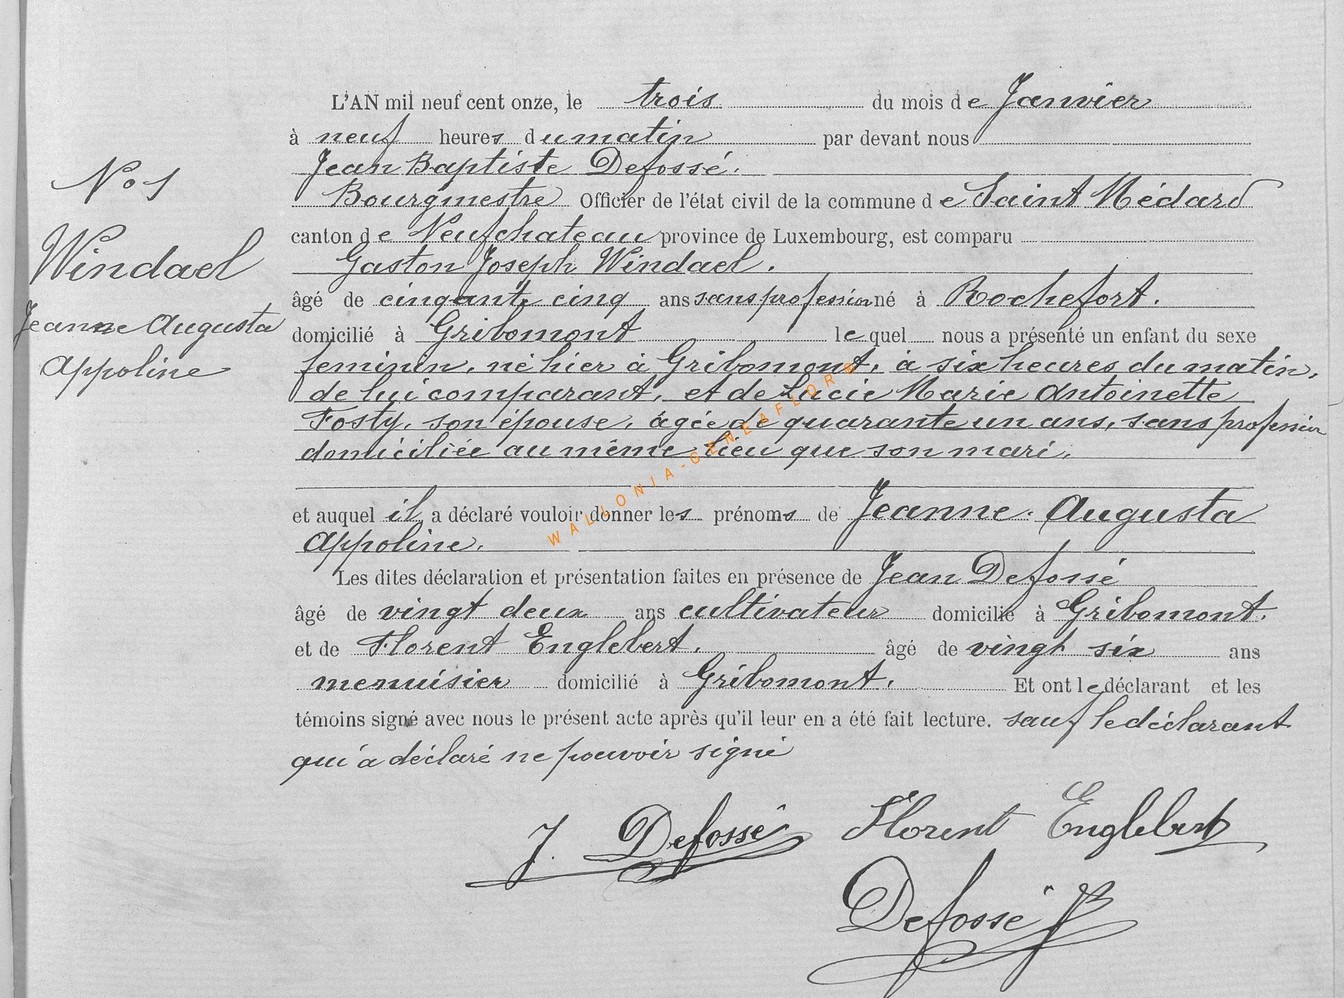 L'AN mil neuf cent onze, le trois du mois de Janvier
à neuf heures du matin par devant nous
Jean Baptiste Defossé.
Nº 1
Bourgmestre Officier de l'état civil de la commune de Saint Médard
canton de Neufchateau province de Luxembourg, est comparu
Windael
Gaston Joseph Windael.
âgé de cinqante cinq ans sans profession né à Rochefort.
Jeanne Augusta
domicilié à Gribomont lequel nous a présenté un enfant du sexe
Appoline
feminin, né hier à Gribomont, à six heures du matin,
de lui comparant, et de Lucie Marie Antoinette
Fosty, son épouse, agée de quarante un ans, sans profession
domiciliée au même lieu que son mari.
WALLONIA-GENEAFLORE
et auquel il a déclaré vouloir donner les prénoms de Jeanne. Augusta
Appoline.
Les dites déclaration et présentation faites en présence de Jean Defossé
âgé de vingt deux ans cultivateur domicilié à Gribomont.
et de Florent Englebert. âgé de vingt six ans
menuisier domicilié à Gribomont. Et ont le déclarant et les
témoins signé avec nous le présent acte après qu'il leur en a été fait lecture. sauf le déclarant
qui a déclaré ne pouvoir signé
J. Defossé Florent Englebert
Defossé JB